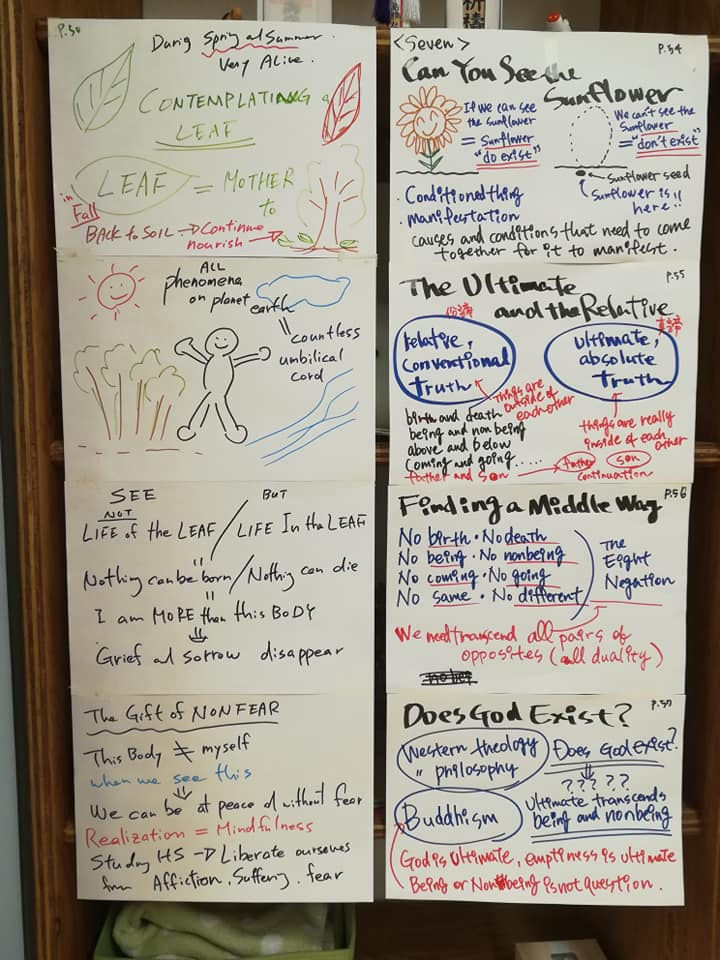 P.50
Durig Spring ad Summer.
Very Alive.
CONTEMPLATING a
LEAF
LEAF = MOTHER
to
in
Fall
BACK to SOIL → Continue
nourish →
ALL
phenomena
on planet
earth
=
countless
umbilical
cord
SEE BUT
NOT
LIFE of the LEAF / LIFE In the LEAF
=
Nothing can be born / Nothing can die
=
I am MORE than this BODY
⇓
Grief ad sorrow disappear
The Gift of NONFEAR
This Body ≠ myself
when we see this
⇓
We can be at peace d without fear
Realization = Mindfulness
Studing HS → Liberate ourselves
from Affiction, Suffering, fear
<Seven> P.54
Can You See the
Sunflower
If we can see
the sunflower
= Sunflower
"do exist"
We can't see the
Sunflower
= "don't exist"
Sunflower seed
Sunflower is
here!!
・Conditioned thing
・manifestation
causes and conditions that need to come
together for it to manifest.
P.55
The Ultimate
and the Relative
俗諦
真諦
relative,
conventional
Truth
ultimate,
absolute
Truth
things are
outside of
each other
birth and death
being and non being
above and below
Coming and going.....
father and son → father son
continuation
things are really
inside of each
other
Finding a Middle Way P.56
No birth・No death
No being・No nonbeing
No coming・No going
No same・No different
The
Eight
Negation
We need transcend all pairs of
opposites (all duality)
Does God Exist? P.57
Western theology
" philosophy
Does God exist?
⇓
?????
Buddhism
Ultimate transcends
being and nonbeing
God is Ultimate, emptiness is ultimate
Being or Nonbeing is not question.